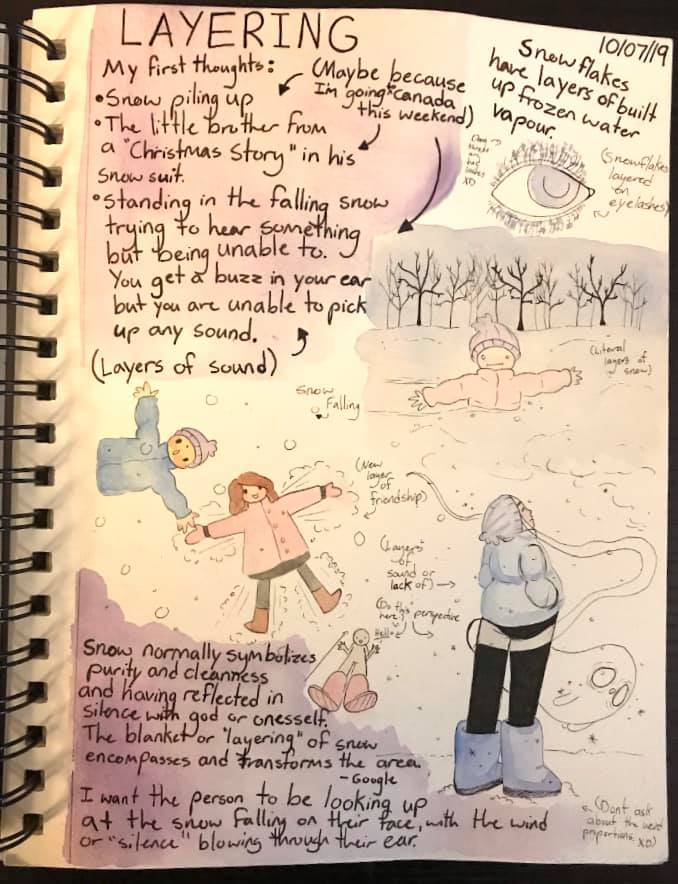 LAYERING
10/07/19
My first thoughts:
(Maybe because
I'm going^canada
this weekend)
•Snow piling up
•The little brother from
a "Christmas Story" in his
snow suit.
•Standing in the falling snow
trying to hear something
but being unable to.
You get a buzz in your ear
but you are unable to pick
up any sound.
(Layers of sound)
Snow flakes
have layers of built
up frozen water
vapour.
XD
(Snowflakes
layered
on
eyelashes)
(Literal
layers of
snow)
Snow
Falling
(New
layer
of
friendship)
(Layers
of
sound or
lack of)
(Do this perspective
here?)
Hello
Snow normally symbolizes
purity and cleanness
and having reflected in
silence with god or onesself.
The blanket or "layering" of snow
encompasses and transforms the area
-Google
I want the person to be looking up
at the snow falling on their face, with the wind
or "silence" blowing through their ear.
(Dont ask
about the weird
proportions. XD)